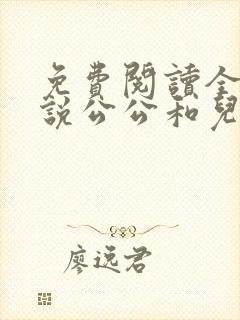 免費閱讀全
說公公和兒
廖逸君